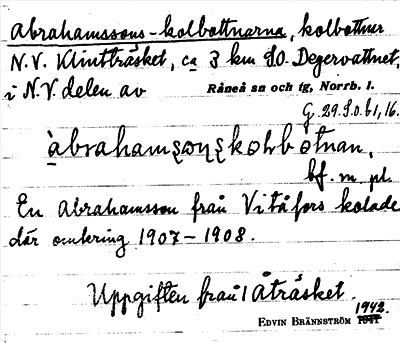 Abrahamssons-kolbottnarna, kolbottner
N.V. Klintträsket, ca 3 km S.O. Degervattnet,
i N.V. delen av Råneå sn och tg, Norrb. l.
G. 29. S.O. b1, 16.
bf. m. pl.
En Abrahamsson från Vitåfors kolade
där omkring 1907–1908.
Uppgiften från Åträsket.
EDVIN BRÄNNSTRÖM 1942.